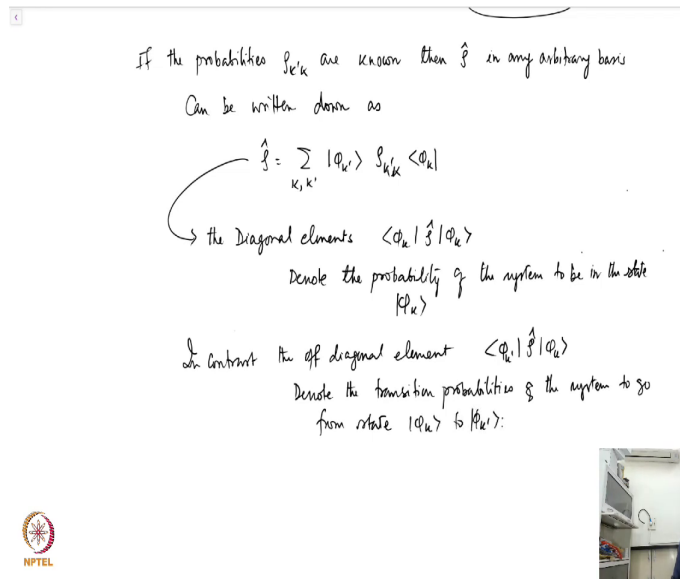 If the probabilities ρ_k'k are known then ρ̂ in any arbitrary basis
Can be written down as
ρ̂ = Σ |φ_k'⟩ ρ_k'k ⟨φ_k|
k, k'
→ the Diagonal elments ⟨φ_k| ρ̂ |φ_k⟩
Denote the probability of the system to be in the state
|φ_k⟩
In contrast the off diagonal element ⟨φ_k'| ρ̂ |φ_k⟩
Denote the transition probabilities of the system to go
from state |φ_k⟩ to |φ_k'⟩:
NPTEL